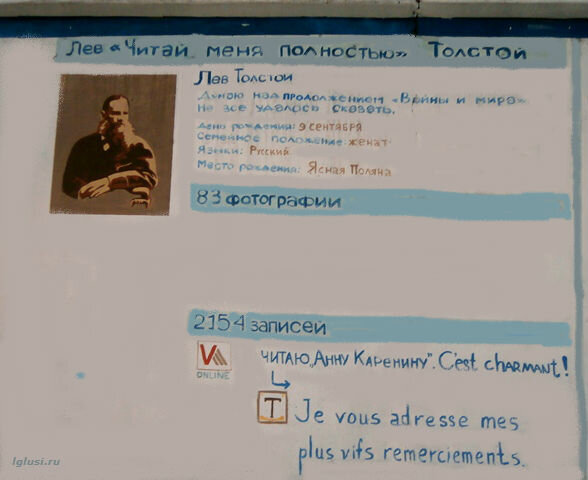 Лев «Читай меня полностью» Толстой
Лев Толстой
Думаю над продолжением «Войны и мира»
Не все удалось сказать.
День рождения: 9 сентября
Семейное положение: женат
Языки: Русский
Место рождения: Ясная Поляна
83 фотографии
2154 записей
V
ONLINE
читаю „Анну Каренину". C'est charmant!
T
Je vous adresse mes
plus vifs remerciements.
Iglusi.ru